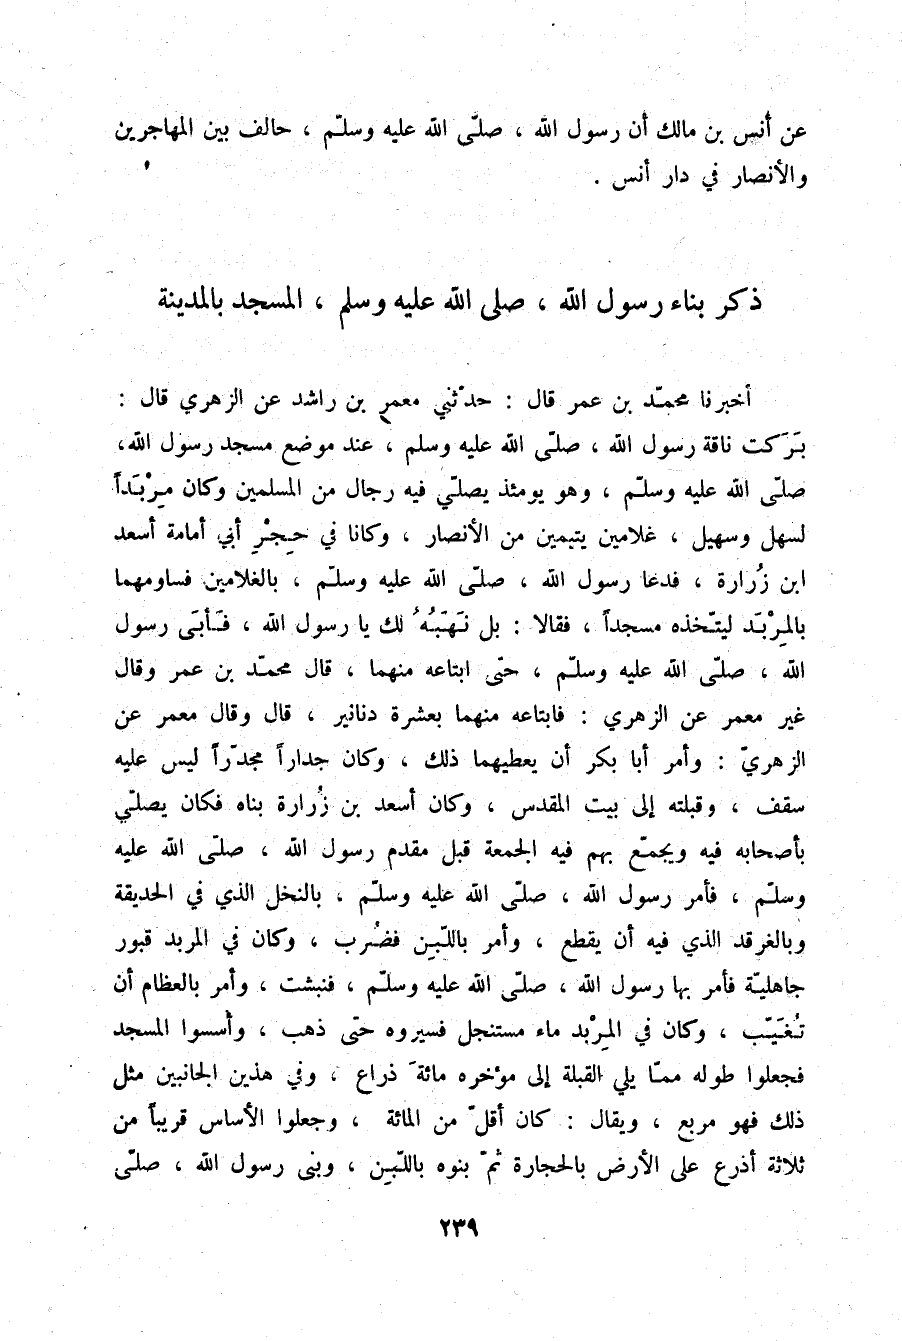 عن أنس بن مالك أن رسول الله ، صلّى الله عليه وسلّم ، حالف بين المهاجرين
والأنصار في دار أنس .
ذكر بناء رسول الله ، صلى الله عليه وسلم ، المسجد بالمدينة
أخبرنا محمّد بن عمر قال : حدّثني معمر بن راشد عن الزهري قال :
بَرَكت ناقة رسول الله ، صلّى الله عليه وسلم ، عند موضع مسجد رسول الله،
صلّى الله عليه وسلّم ، وهو يومئذ يصلّي فيه رجال من المسلمين وكان مِرْبَداً
لسهل وسهيل ، غلامين يتيمين من الأنصار ، وكانا في حِجْرِ أبي أمامة أسعد
ابن زُرارة ، فدعا رسول الله ، صلّى الله عليه وسلّم ، بالغلامين فساومهما
بالمِرْبَد ليتّخذه مسجداً ، فقالا : بل نَهَبُهُ لك يا رسول الله ، فَأبَى رسول
الله ، صلّى الله عليه وسلّم ، حتّى ابتاعه منهما ، قال محمّد بن عمر وقال
غير معمر عن الزهري : فابتاعه منهما بعشرة دنانير ، قال وقال معمر عن
الزهريّ : وأمر أبا بكر أن يعطيهما ذلك ، وكان جداراً مجدّراً ليس عليه
سقف ، وقبلته إلى بيت المقدس ، وكان أسعد بن زُرارة بناه فكان يصلّي
بأصحابه فيه ويجمّع بهم فيه الجمعة قبل مقدم رسول الله ، صلّى الله عليه
وسلّم ، فأمر رسول الله ، صلّى الله عليه وسلّم ، بالنخل الذي في الحديقة
وبالغرقد الذي فيه أن يقطع ، وأمر باللّبِن فضُرب ، وكان في المربد قبور
جاهليّة فأمر بها رسول الله ، صلّى الله عليه وسلّم ، فنبشت ، وأمر بالعظام أن
تُغَيّب ، وكان في المِرْبد ماء مستنجل فسيروه حتّى ذهب ، وأسسوا المسجد
فجعلوا طوله ممّا يلي القبلة إلى مؤخره مائةَ ذراع ، وفي هذين الجانبين مثل
ذلك فهو مربع ، ويقال : كان أقلّ من المائة ، وجعلوا الأساس قريباً من
ثلاثة أذرع على الأرض بالحجارة ثمّ بنوه باللّبِن ، وبنى رسول الله ، صلّى
٢٣٩